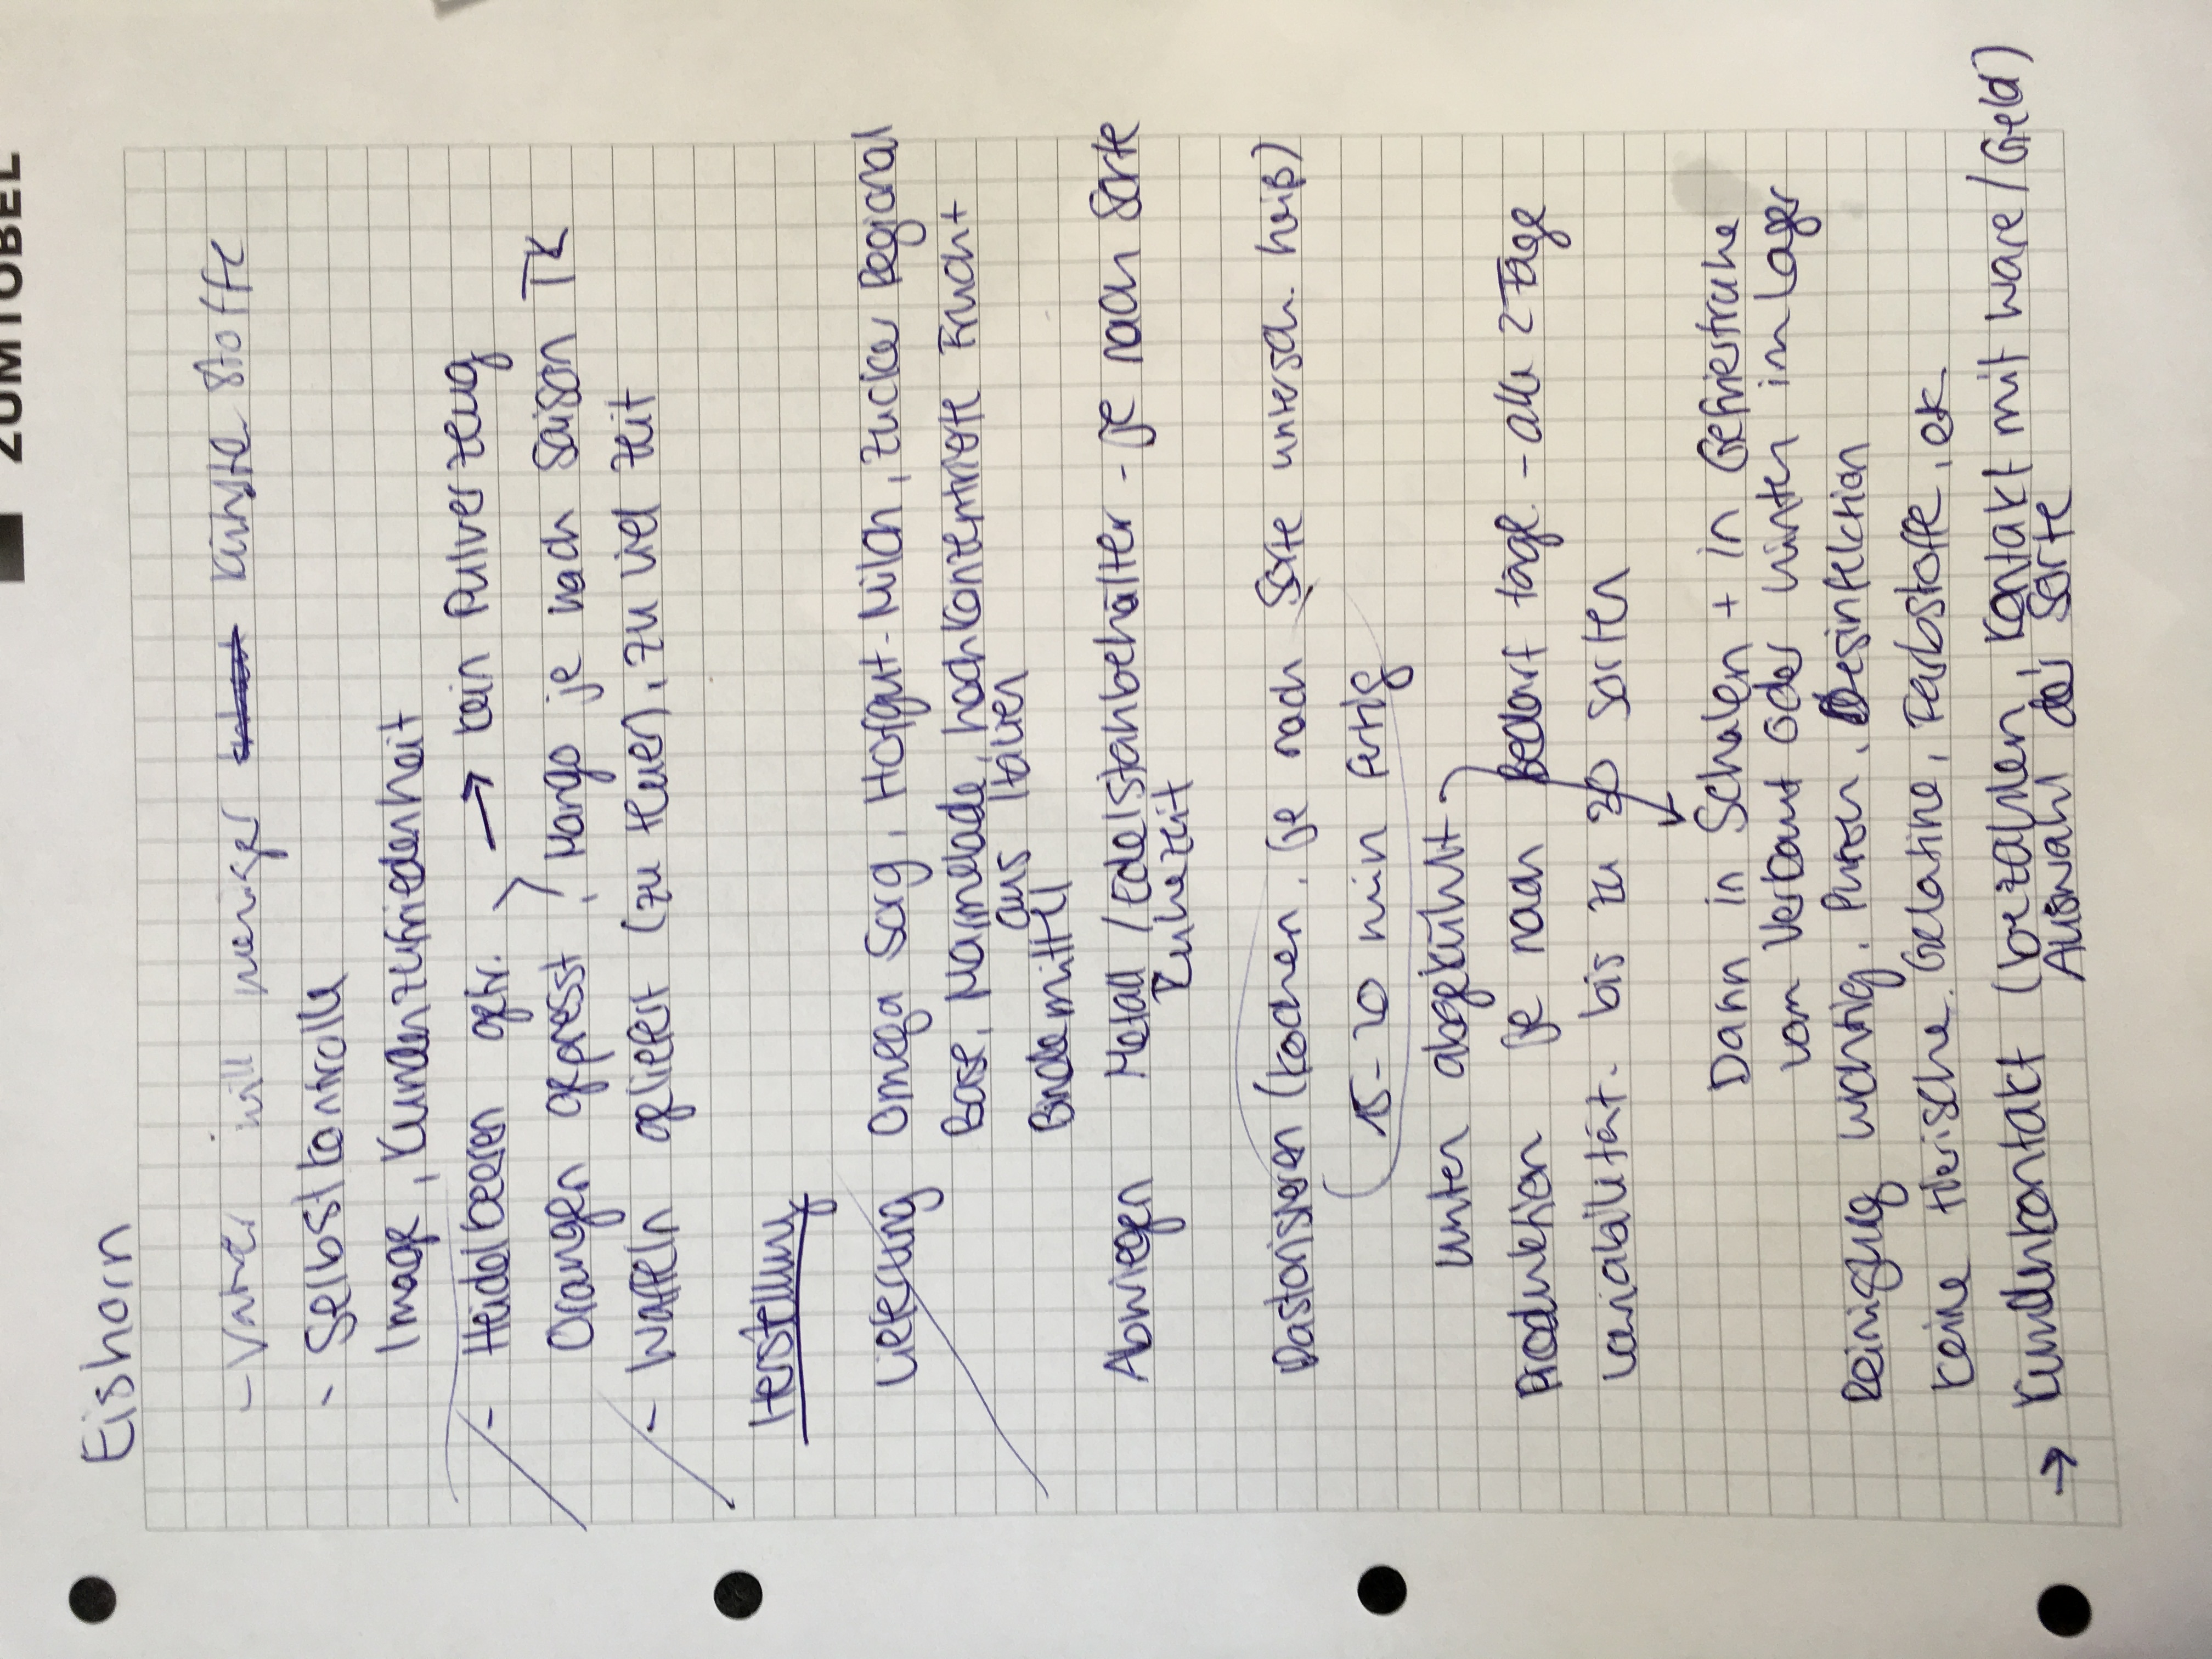 ZUMTOBEL
Eishorn
- Vater will weniger künstl. Stoffe
- Selbstkontrolle
Image, Kundenzufriedenheit
- Heidelbeeren gefr. → kein Pulverzeug
Orangen gepresst, Mango je nach Saison TK
- Waffeln geliefert (zu teuer), zu viel Zeit
Herstellung
Lieferung Omega Sorg, Hofgut-Milch, Zucker Regional
Base, Marmelade, hochkonzentrierte Frucht
aus Italien
Bindemittel
Abwiegen Metall / Edelstahlbehälter - je nach Sorte
Ruhezeit
Pastorisieren (kochen, je nach Sorte untersch. heiß)
15-20 min fertig
unten abgekühlt
Produktion je nach Bedarf tägl. - alle 2 Tage
Variabilität. bis zu 30 Sorten
Dann in Schalen + in Gefriertruhe
vorn Verkauf oder hinten im Lager
Reinigung wichtig. Putzen, Desinfektion
keine tierische Gelatine, Farbstoffe, etc.
→ Kundenkontakt (bezahlen, Kontakt mit Ware/Geld)
Auswahl der Sorte